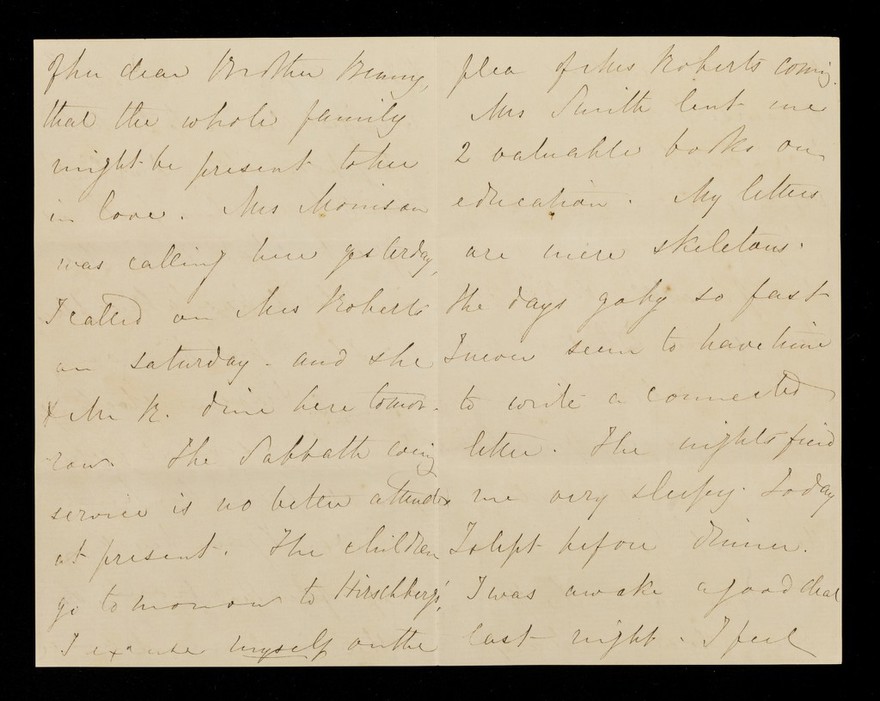 of her dear Brother Benny,
that the whole family
might be present to her
in love. Mrs Morrison
was calling here yesterday,
I called on Mrs Roberts
on Saturday - and she
& Mr R. dine here tomor-
row. The Sabbath eving
service is no better attended
at present. The children
go tomorrow to Hirschbergs',
I excuse myself on the
plea of Mrs Roberts coming.
Mrs Smith lent me
2 valuable books on
education. My letters
are mere skeletons.
The days go by so fast
I never seem to have time
to write a connected
letter. The nights find
me very sleepy. Today
I slept before dinner.
I was awake a good deal
last night. I feel